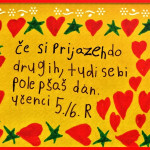 če si prijazen do
drugih, tudi sebi
polepšaš dan.
učenci 5./6. R